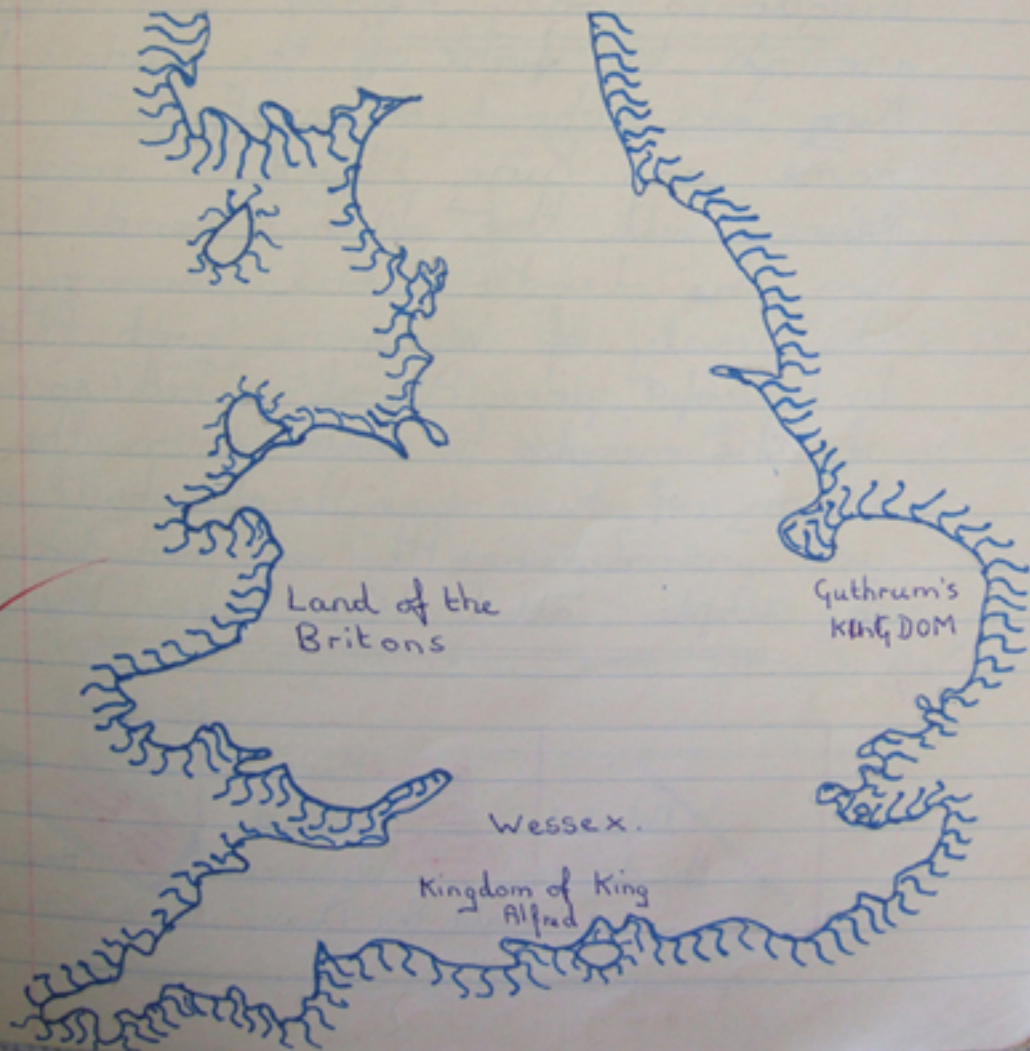 Land of the
Britons
Guthrum's
KINGDOM
Wessex.
Kingdom of King
Alfred